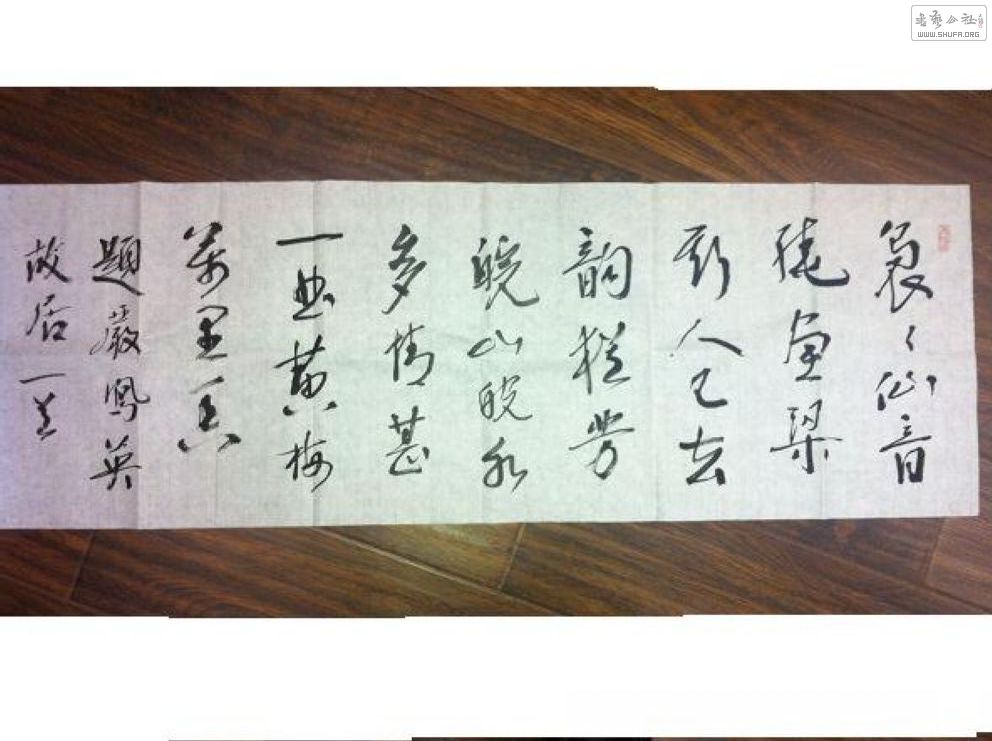 書藝公社
WWW.SHUFA.ORG
裊々仙音
繞画梁
斯人已去
韵猶芳
皖山皖水
多情甚
一曲黄梅
萬里香
題嚴鳳英
故居一首